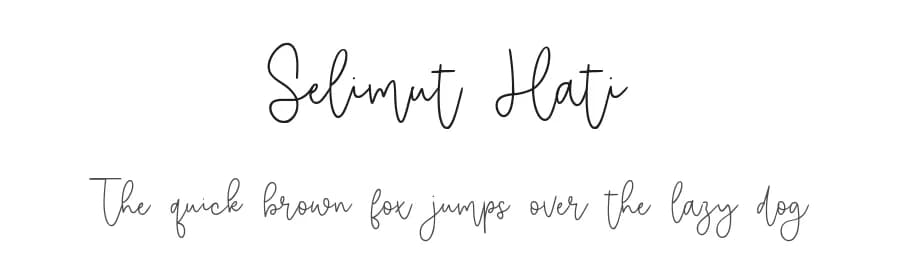 Selimut Hati
The quick brown fox jumps over the lazy dog